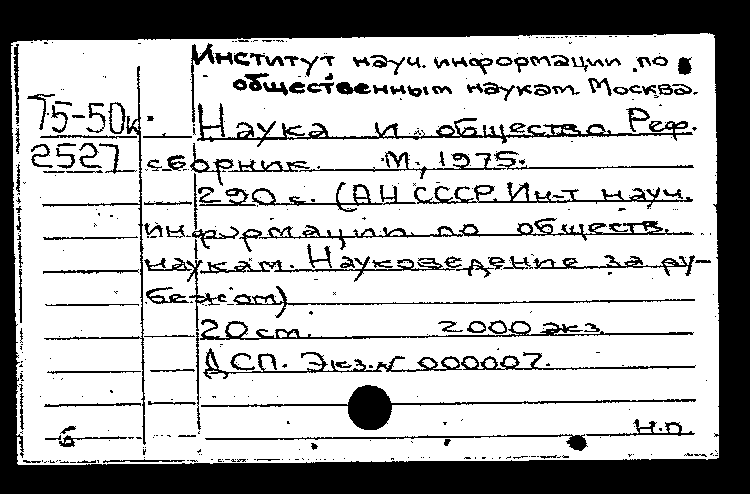 Институт науч. информации по
общественным наукам. Москва.
75-50к
Наука и общество. Реф.
2527 сборник. М., 1975.
290 с. (АН СССР. Ин-т науч.
информации по обществ.
наукам. Науковедение за ру-
бежом)
20 см. 2000 экз.
ДСП. Экз. № 000007.
Н.п.
6